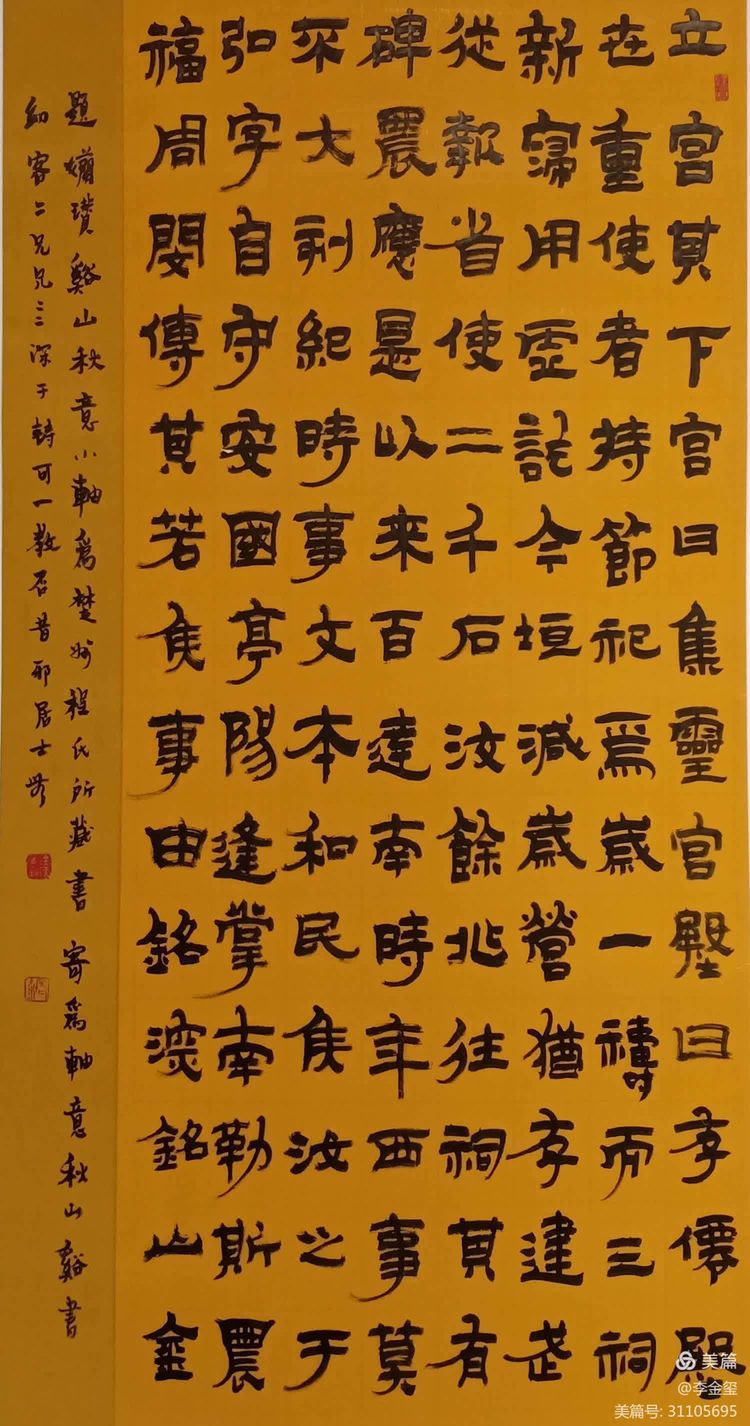 立宫其下宫曰集靈宫殿曰存僊殿
在重使者持節祀焉歲一禱而三祠
新寤用虚訖今垣減歲營猶存建武
從報省使二千石汝餘北往祠其有
碑農應是以来百達南時年西事莫
不大利紀時事文本和民侯汝之于
弘字自守安國亭陽逢掌南勒斯農
福周閔傳其若侯事由銘深銘山金
題 山秋意小軸爲楚州程氏所藏書寄爲軸意秋山谿書
幼客二兄兄三深于詩可一教否昔邪居士
美篇
@李金玺
美篇号: 31105695